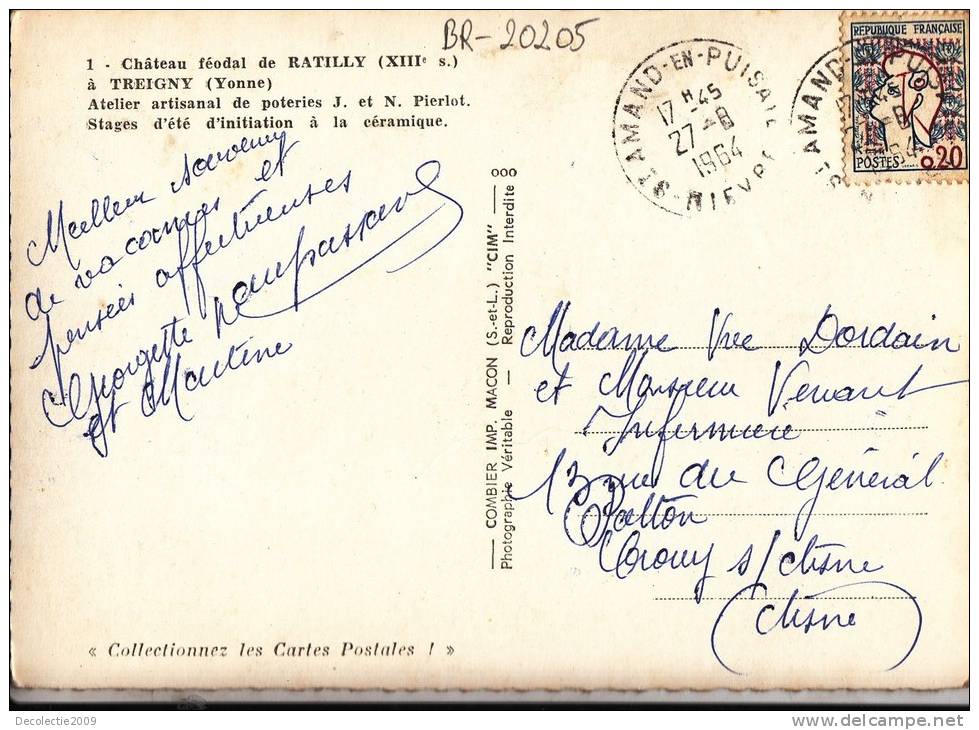 BR-20205
1 - Château féodal de RATILLY (XIIIe s.)
à TREIGNY (Yonne)
Atelier artisanal de poteries J. et N. Pierlot.
Stages d'été d'initiation à la céramique.
Meilleur souvenir
de vacances et
pensées affectueuses
Georgette
et Martine
COMBIER IMP. MACON (S.-et-L.) "CIM"
Photographie Véritable - Reproduction Interdite
ooo
ST AMAND-EN-PUISAYE
17H45
27-8
1964
NIEVRE
REPUBLIQUE FRANÇAISE
POSTES
0,20
Madame Vve Dordain
et Monsieur Venant
Infirmière
13 rue du Général
Patton
Crouy s/Aisne
(Aisne)
« Collectionnez les Cartes Postales ! »
Decolectie2009
http://www.delcampe.net